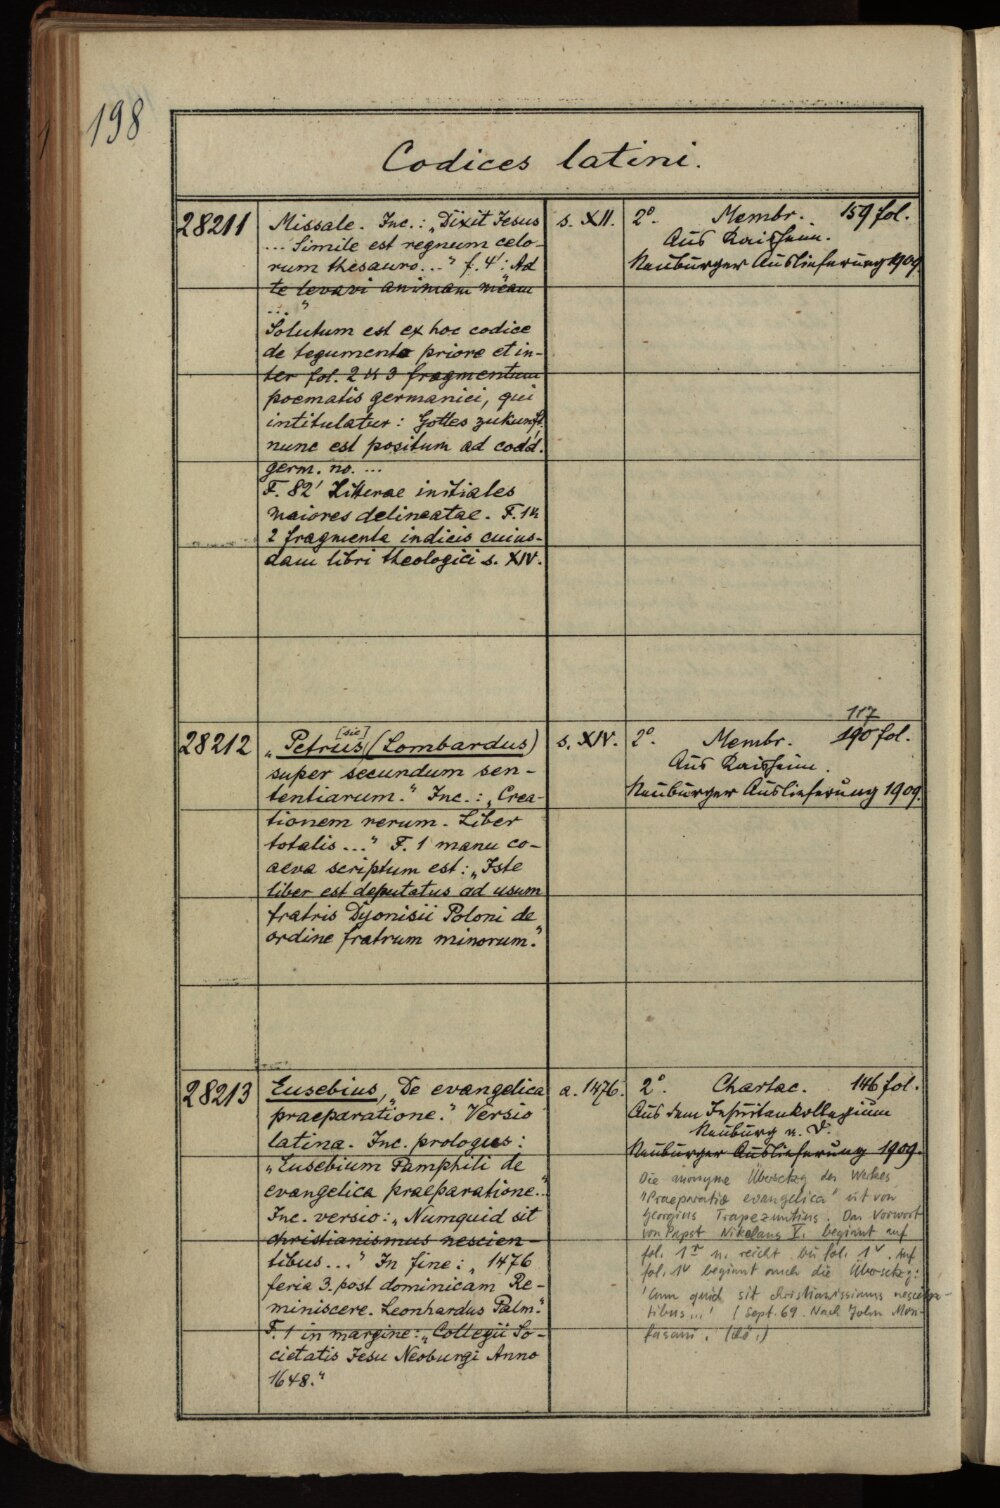 198
Codices latini.
28211
Missale. Inc.: „Dixit Jesus
... Simile est regnum celo-
rum thesauro..." f. 4': Ad
te levavi animam meam
..."
Solutum est ex hoc codice
de tegumento priore et in-
ter fol. 2 u 3 fragmentum
poematis germanici, qui
intitulatur: Gottes zukunft,
nunc est positum ad codd.
germ. no. ...
F. 82' Litterae initiales
maiores delineatae. F. 1 u
2 fragmenta indicis cuius-
dam libri theologici s. XIV.
s. XII.
2º. Membr. 159 fol.
Aus Kaisheim.
Neuburger Auslieferung 1909.
28212
[sic]
„Petrus (Lombardus)
super secundum sen-
tentiarum." Inc.: „Crea-
tionem rerum. Liber
totalis..." F. 1 manu co-
aeva scriptum est: „Iste
liber est deputatus ad usum
fratris Dyonisii Poloni de
ordine fratrum minorum."
s. XIV.
117
2º. Membr. 190 fol.
Aus Kaisheim.
Neuburger Auslieferung 1909.
28213
Eusebius, „De evangelica
praeparatione." Versio
latina. Inc. prologus:
„Eusebium Pamphili de
evangelica praeparatione.."
Inc. versio: „Numquid sit
christianismus nescien-
tibus..." In fine: „1476
feria 3. post dominicam Re-
miniscere. Leonhardus Palm."
F. 1 in margine: „Collegii So-
cietatis Jesu Neoburgi Anno
1648."
a. 1476.
2º. Chartac. 146 fol.
Aus dem Jesuitenkollegium
Neuburg a. D.
Neuburger Auslieferung 1909.
Die anonyme Übersetzg des Werkes
"Praeparatio evangelica" ist von
Georgius Trapezuntius. Das Vorwort
von Papst Nikolaus V. beginnt auf
fol. 1r u. reicht bis fol. 1v. Auf
fol. 1v beginnt auch die Übersetzg:
'Cum quid sit christianissimus nescien-
tibus...' (Sept. 69. Nach John Mon-
fasani.